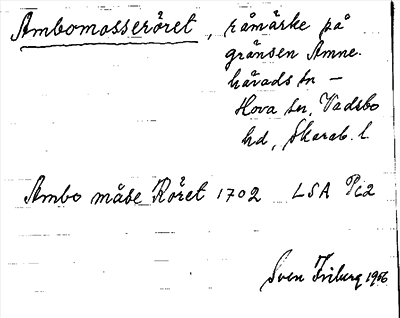 Ambomosseröret, råmärke på
gränsen Amne-
härads sn –
Hova sn, Vadsbo
hd, Skarab. l.
Ambo måse Röret 1702 LSA Pc2
Sven Friberg 1966